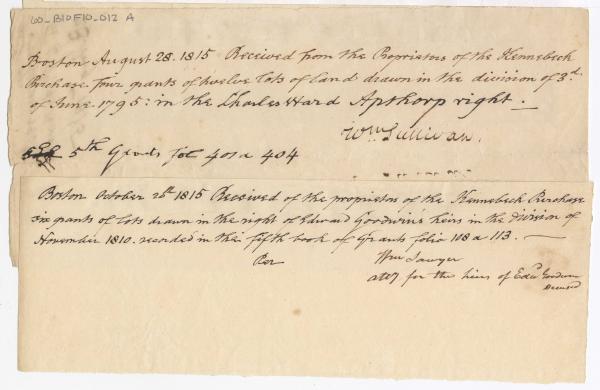 WO_B10F10_012 A
Boston August 28. 1815 Received from the Proprietors of the Kennebeck
Purchase four grants of twelve lots of land drawn in the division of 3d.
of June 1795: in the Charles Ward Apthorp right.
Wm Sullivan.
5th Grants fol 401 a 404
Boston October 26th 1815 Received of the proprietors of the Kennebeck Purchase
six grants of lots drawn in the right of Edward Goodwins heirs in the division of
November 1810. recorded in the fifth book of Grants folio 108 a 113.
Per Wm Sawyer
atty for the heirs of Edwd Goodwin
deceased